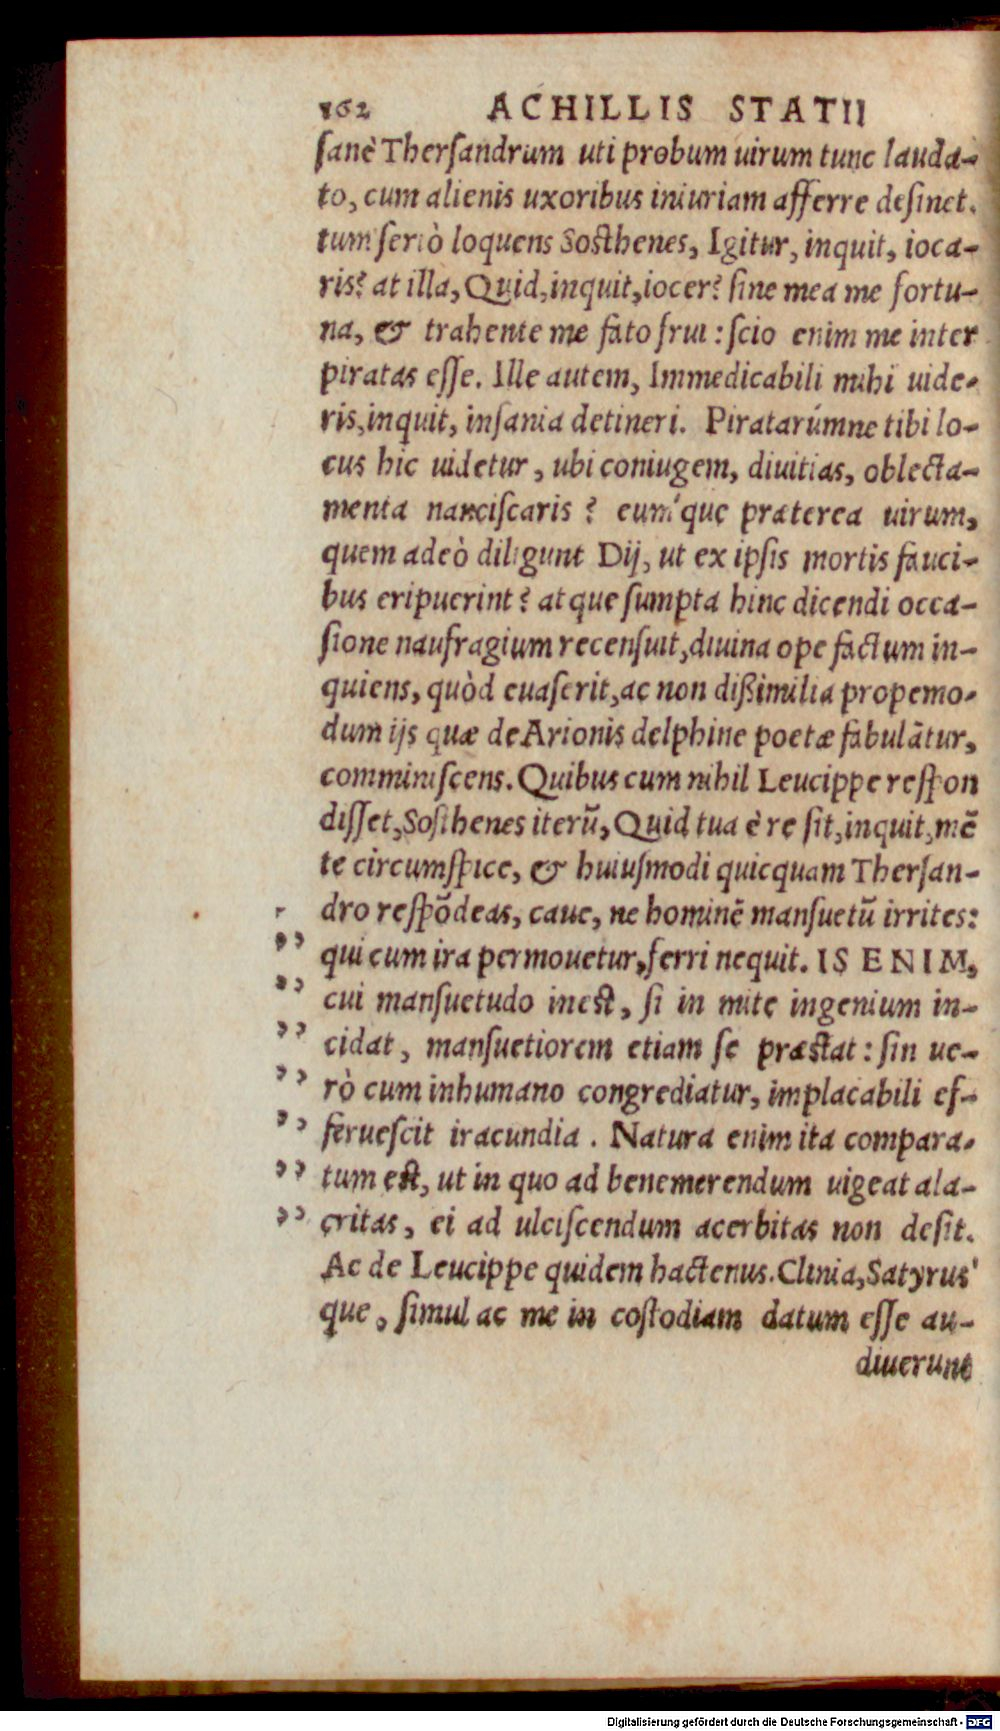 162 ACHILLIS STATII
ſanè Therſandrum uti probum uirum tunc lauda-
to, cum alienis uxoribus iniuriam afferre deſinet.
tum ſeriò loquens Soſthenes, Igitur, inquit, ioca-
ris? at illa, Quid, inquit, iocer? ſine mea me fortu-
na, & trahente me fato frui : ſcio enim me inter
piratas eſſe. Ille autem, Immedicabili mihi uide-
ris, inquit, inſania detineri. Piratarúmne tibi lo-
cus hic uidetur, ubi coniugem, diuitias, oblecta-
menta nanciſcaris ? eum'que præterea uirum,
quem adeò diligunt Dij, ut ex ipſis mortis fauci-
bus eripuerint? atque ſumpta hinc dicendi occa-
ſione naufragium recenſuit, diuina ope factum in-
quiens, quòd euaſerit, ac non dißimilia propemo-
dum ijs quæ de Arionis delphine poetæ fabulātur,
comminiſcens. Quibus cum nihil Leucippe reſpon
diſſet, Soſthenes iterū, Quid tua è re ſit, inquit, mē
te circumſpice, & huiuſmodi quicquam Therſan-
dro reſpōdeas, caue, ne hominē manſuetū irrites:
qui cum ira permouetur, ferri nequit. IS ENIM,
cui manſuetudo ineſt, ſi in mite ingenium in-
cidat, manſuetiorem etiam ſe præſtat : ſin ue-
rò cum inhumano congrediatur, implacabili ef-
ferueſcit iracundia . Natura enim ita compara-
tum eſt, ut in quo ad benemerendum uigeat ala-
critas, ei ad ulciſcendum acerbitas non deſit.
Ac de Leucippe quidem hactenus. Clinia, Satyrus'
que, ſimul ac me in coſtodiam datum eſſe au-
diuerunt
Digitalisierung gefördert durch die Deutsche Forschungsgemeinschaft - DFG